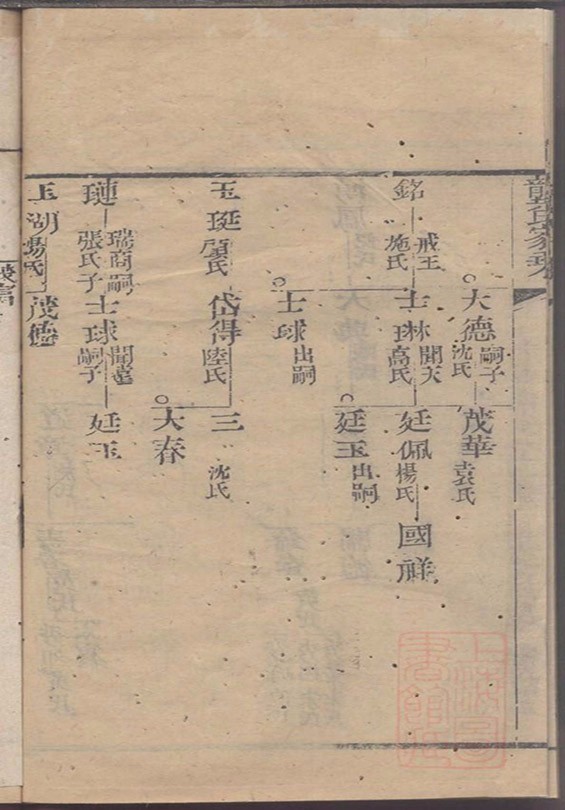 龔氏家乘
大德 嗣子 沈氏 茂華 袁氏
銘 戒玉 施氏 士琳 開天 高氏 廷佩 楊氏 國祥
士球 出嗣 廷玉 出嗣
玉珽 顧氏 岱得 陸氏 三 沈氏
大春
璉 瑞商嗣 張氏子 士球 嗣子 廷玉
玉湖 楊氏 茂德
上海圖書館藏